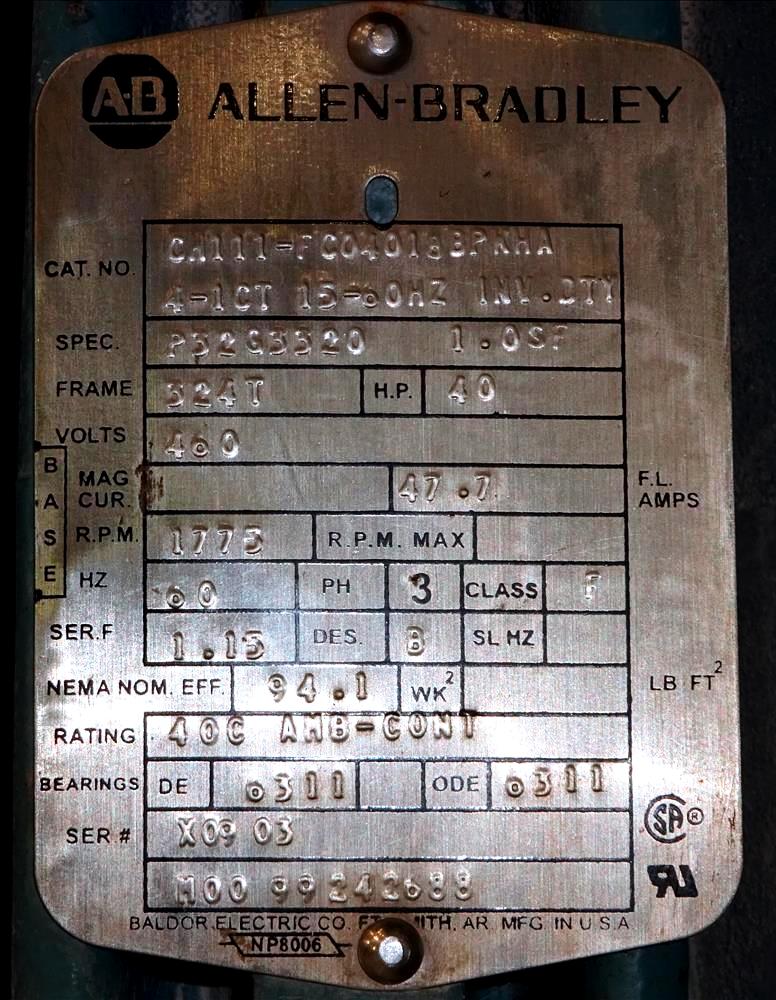 A-B ALLEN-BRADLEY
CAT. NO. 4-1CT 15-60HZ INV.DTY
SPEC. P32G3320 1.0SF
FRAME 324T H.P. 40
VOLTS 460
BASE
MAG CUR. 47.7 F.L. AMPS
R.P.M. 1775 R.P.M. MAX
HZ 60 PH 3 CLASS F
SER.F 1.15 DES. B SL HZ
NEMA NOM. EFF. 94.1 WK² LB FT²
RATING 40C AMB-CONT
BEARINGS DE 6311 ODE 6311
SER # X09 03
M00 99242688
BALDOR ELECTRIC CO. AR. MFG. IN U.S.A
NP8006
SA ®